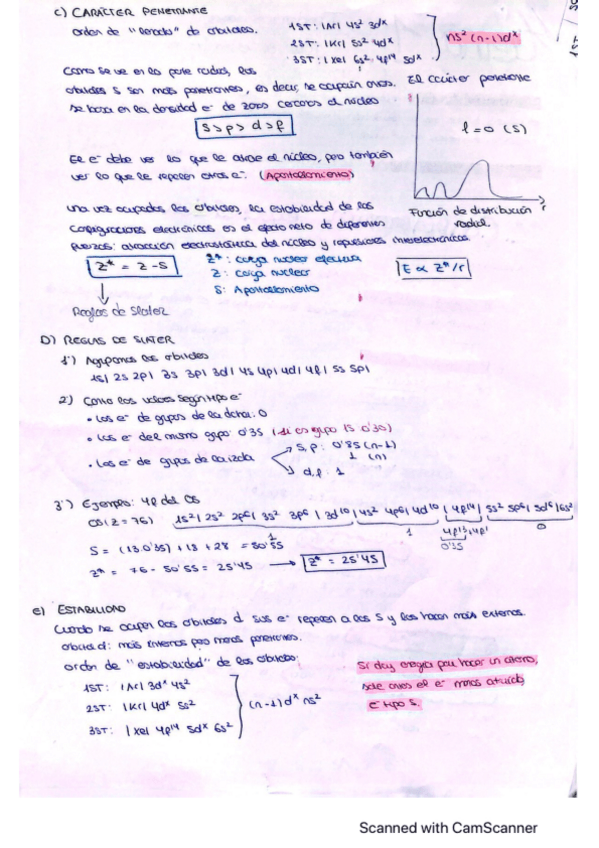 c) CARÁCTER PENETRANTE
Orden de "llenado" de orbitales.
1ST: |Ar| 4s² 3dˣ
2ST: |Kr| 5s² 4dˣ
3ST: |Xe| 6s² 4f¹⁴ 5dˣ
ns² (n-1)dˣ
1ST
Como se ve en la parte radial, los
orbitales s son más penetrantes, es decir, se ocupan antes.
se basa en la densidad e⁻ de zonas cercanas al núcleo
s>p>d>f
El carácter penetrante
l=0 (s)
r
Función de distribución
radial.
El e⁻ debe ver lo que le atrae el núcleo, pero también
ver lo que le repelen otros e⁻. (Apantallamiento)
una vez ocupados los orbitales, la estabilidad de las
configuraciones electrónicas es el efecto neto de diferentes
fuerzas: atracción electrostática del núcleo y repulsiones interelectrónicas.
Z* = Z-S
Z*: carga nuclear efectiva
Z: carga nuclear
S: Apantallamiento
E ∝ Z*/r
Reglas de Slater
D) REGLAS DE SLATER
1º) Agrupamos los orbitales
1s| 2s 2p| 3s 3p| 3d| 4s 4p| 4d| 4f| 5s 5p|
2) Como los valores según tipo e⁻
• Los e⁻ de grupos de la dcha: 0
• Los e⁻ del mismo grupo: 0'35 (si es grupo 1s 0'30)
• Los e⁻ de grupos de la izda
s,p: 0'85 (n-1)
1 (n)
d,f: 1
3º) Ejemplo: 4f del Os
Os (Z=76) 1s²| 2s² 2p⁶| 3s² 3p⁶ | 3d¹⁰ | 4s² 4p⁶| 4d¹⁰ | 4f¹⁴| 5s² 5p⁶| 5d⁶ |6s²
1
1
4f¹³, 4f¹
0'35
0
S = (13·0'35) + 18 + 28 = 50'55
Z* = 76 - 50'55 = 25'45 → Z* = 25'45
e) ESTABILIDAD
Cuando se ocupen los orbitales d sus e⁻ repelen a los s y los hacen más externos.
orbital d: más internos pero menos penetrantes.
orden de "estabilidad" de los orbitales:
1ST: |Ar| 3dˣ 4s²
2ST: |Kr| 4dˣ 5s²
3ST: |Xe| 4f¹⁴ 5dˣ 6s²
(n-1)dˣ ns²
Si doy energía para hacer un
sale antes el e⁻ menos atraído,
e⁻ tipo s.
Scanned with CamScanner